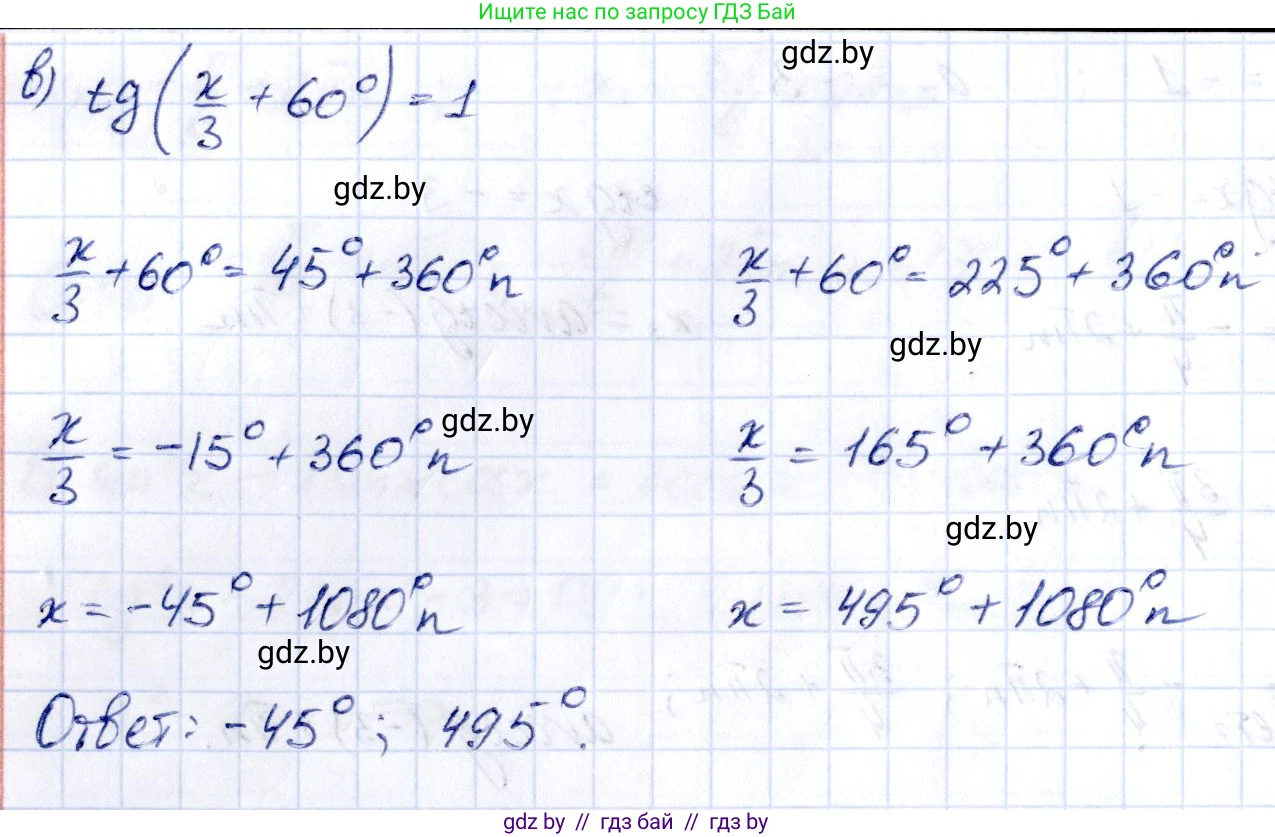 Ищите нас по запросу ГДЗ Бай
gdz.by
в) tg(x/3 + 60°) = 1
gdz.by
x/3 + 60° = 45° + 360°n
x/3 + 60° = 225° + 360°n
gdz.by
gdz.by
x/3 = -15° + 360°n
x/3 = 165° + 360°n
gdz.by
x = -45° + 1080°n
x = 495° + 1080°n
gdz.by
Ответ: -45°; 495°.
gdz.by // гдз бай // гдз by